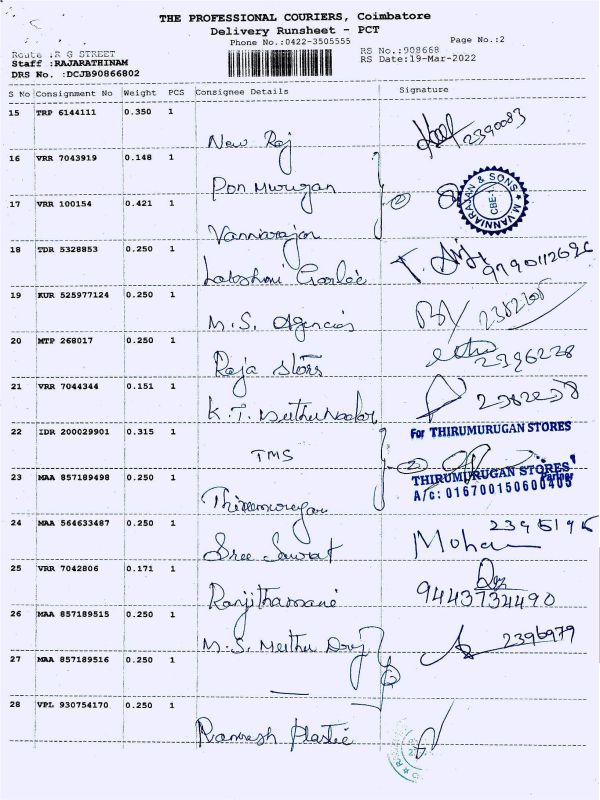 THE PROFESSIONAL COURIERS, Coimbatore
Delivery Runsheet - PCT
Phone No.:0422-3505555
Page No.:2
Route :R G STREET
RS No.:908668
Staff :RAJARATHINAM
RS Date:19-Mar-2022
DRS No. :DCJB90866802
S No Consignment No Weight PCS Consignee Details Signature
15 TRP 6144111 0.350 1
New Raj 2390083
16 VRR 7043919 0.148 1
Pon Murugan
17 VRR 100154 0.421 1
M VANNIARAJAN & SONS CBE-1
Vanniarajan
18 TDR 5328853 0.250 1
Lakshmi
19 KUR 525977124 0.250 1
M.S. Agencies
20 MTP 268017 0.250 1
Raja Stors 2396228
21 VRR 7044344 0.151 1
K.T.
22 IDR 200029901 0.315 1
For THIRUMURUGAN STORES
TMS
23 MAA 857189498 0.250 1
THIRUMURUGAN STORES
Partner
A/c: 016700150600405
Thirumurugan
24 MAA 564633487 0.250 1
Sree Mohan
25 VRR 7042806 0.171 1
9443734490
26 MAA 857189515 0.250 1
M.S. 2396979
27 MAA 857189516 0.250 1
28 VPL 930754170 0.250 1
Ramesh Plastic